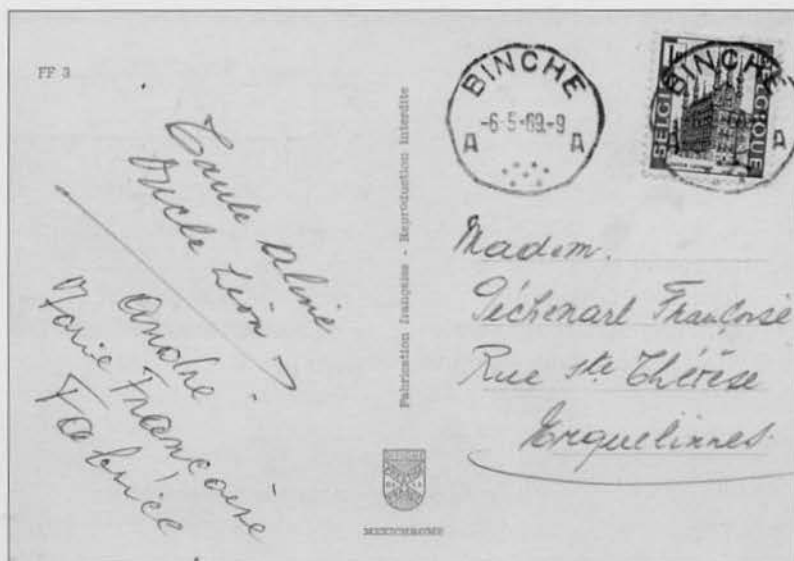 FF 3
Tante Aline
Oncle Léon
André
Marie Françoise
Fabrice
Fabrication française - Reproduction interdite
MEXICHROME
BINCHE
-6-5-69.-9
A A
BINCHE
A
BELGIQUE
Madem.
Péchenart Françoise
Rue Ste Thérèse
Erquelinnes